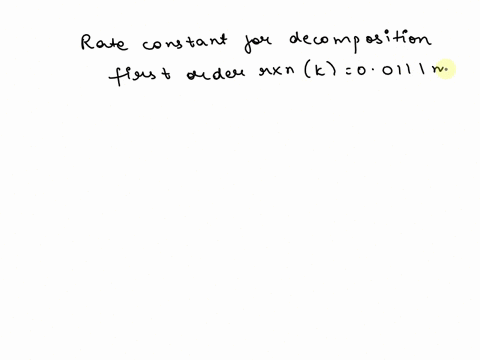 Rate constant for decomposition
first order rxn (k) = 0.0111 m